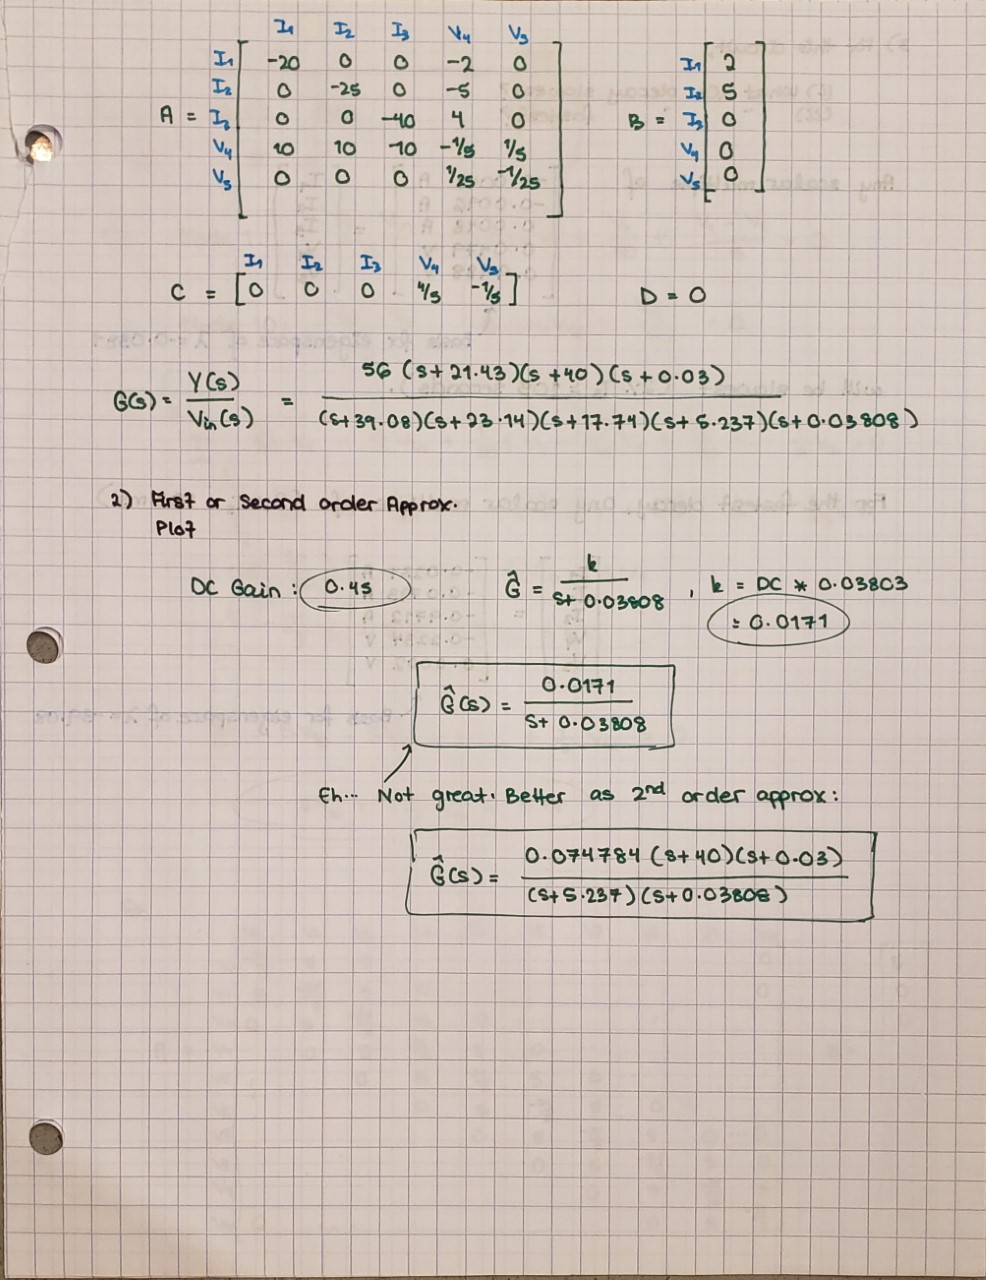 I₁ I₂ I₃ V₄ V₅
I₁ -20 0 0 -2 0
I₂ 0 -25 0 -5 0
A = I₃ 0 0 -40 4 0
V₄ 10 10 -10 -1/5 1/5
V₅ 0 0 0 1/25 -1/25
I₁ 2
I₂ 5
B = I₃ 0
V₄ 0
V₅ 0
I₁ I₂ I₃ V₄ V₅
C = [0 0 0 4/5 -1/5] D = 0
G(s) = Y(s)/Vin(s) = 56 (s+21.43)(s+40)(s+0.03) / (s+39.08)(s+23.14)(s+17.74)(s+5.237)(s+0.03808)
2) First or Second order Approx.
Plot
DC Gain: 0.45 Ĝ = k / s+0.03808 , k = DC * 0.03803
= 0.0171
Ĝ(s) = 0.0171 / s+0.03808
Eh... Not great. Better as 2nd order approx:
Ĝ(s) = 0.074784 (s+40)(s+0.03) / (s+5.237)(s+0.03808)